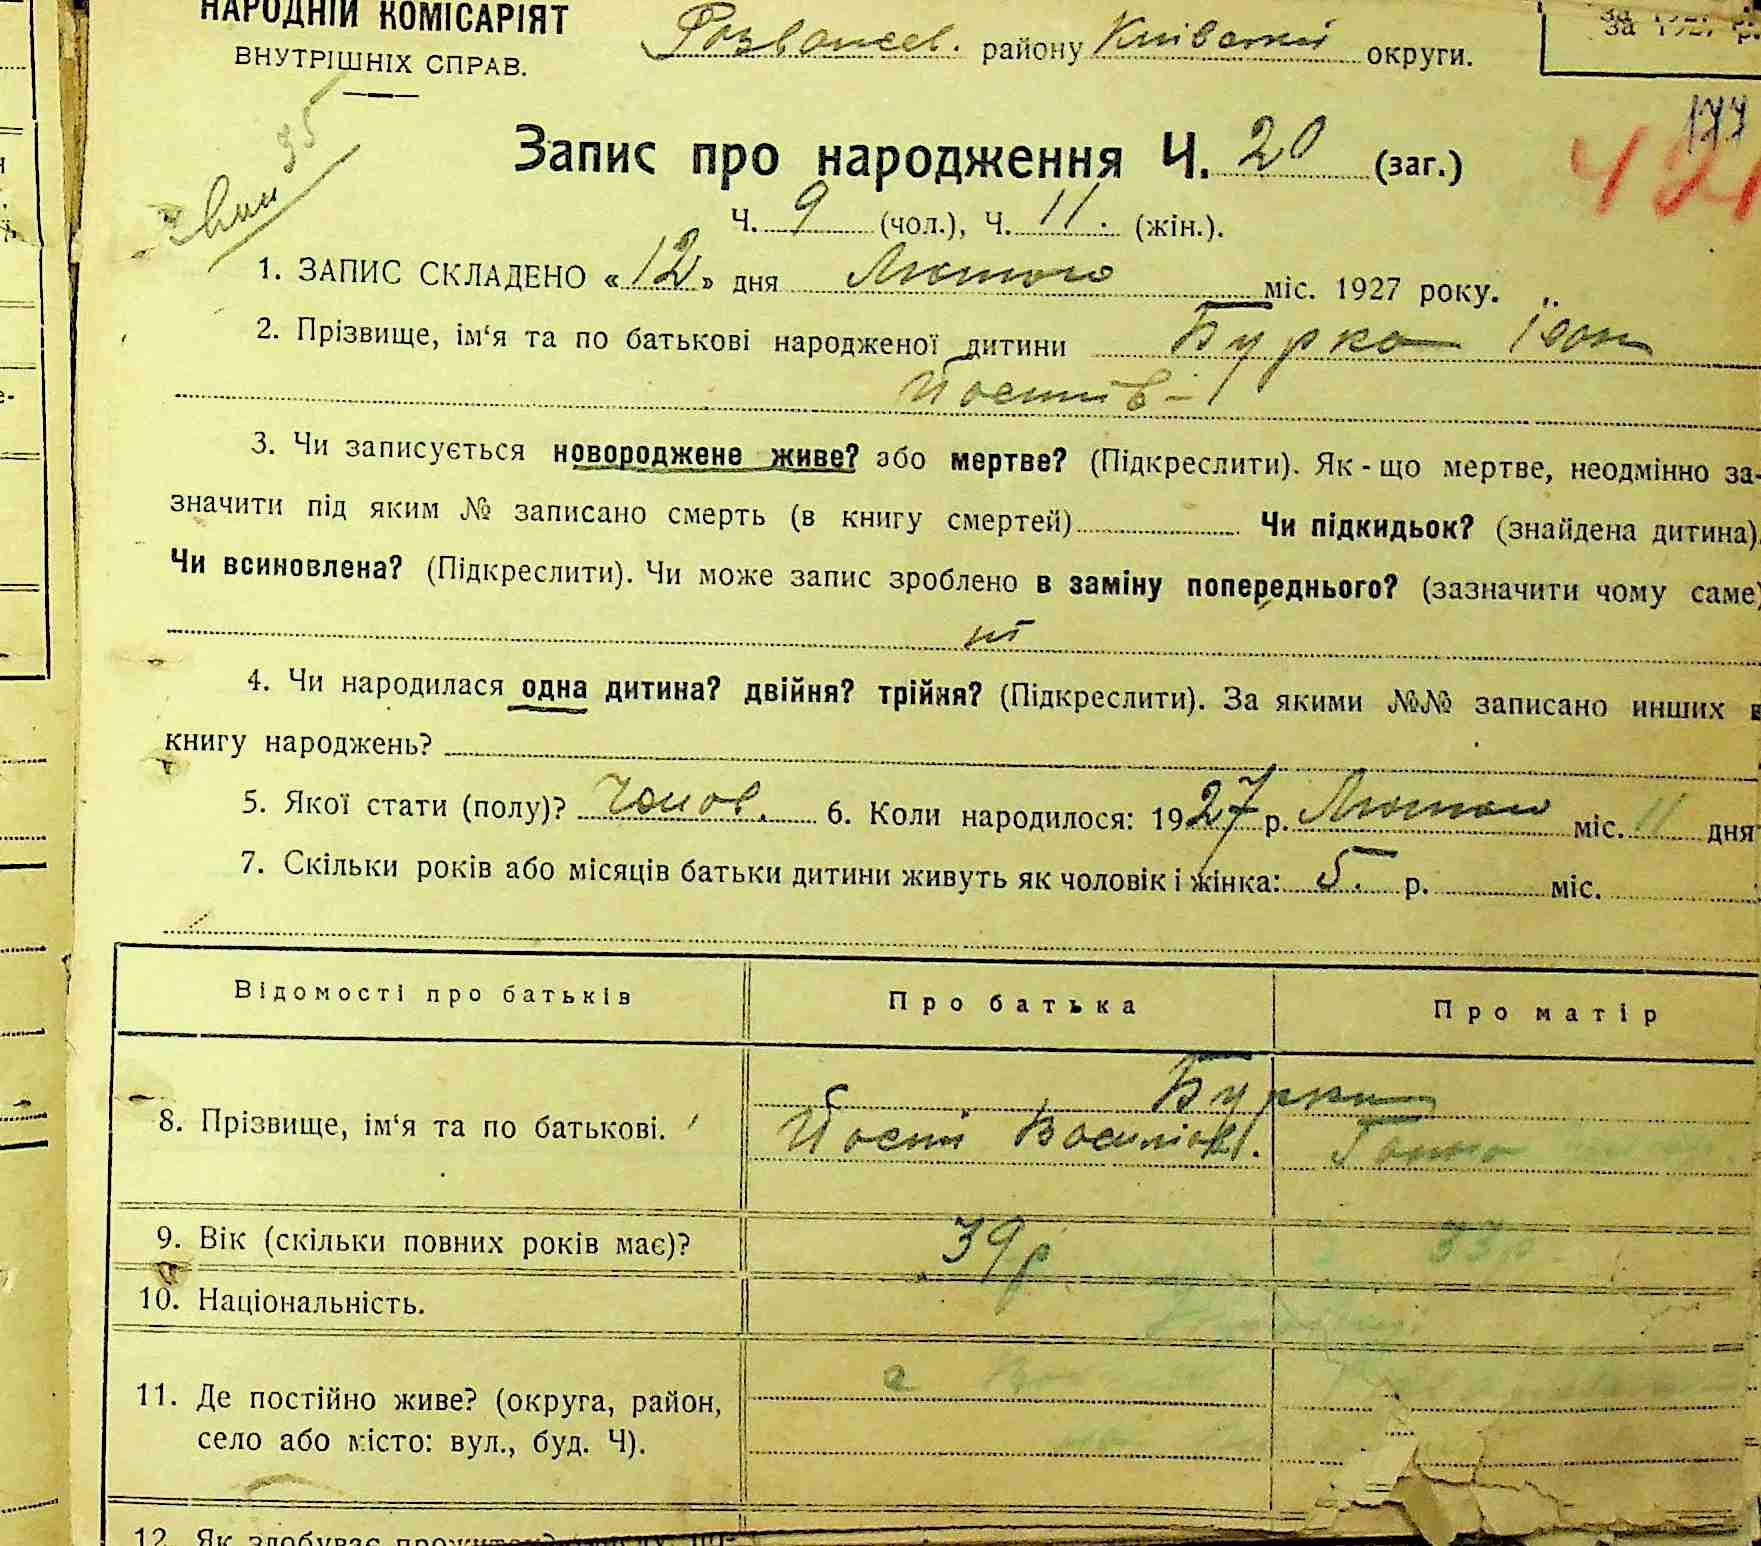 НАРОДНІЙ КОМІСАРІЯТ
ВНУТРІШНІХ СПРАВ.
Розважев. району Київської округи.
за 1927 р.
35
177
421
Запис про народження Ч. 20 (заг.)
Ч. 9 (чол.), Ч. 11. (жін.).
1. ЗАПИС СКЛАДЕНО «12» дня Лютого міс. 1927 року.
2. Прізвище, ім‘я та по батькові народженої дитини Бурко Іван
Йосипів
3. Чи записується новороджене живе? або мертве? (Підкреслити). Як-що мертве, неодмінно за-
значити під яким № записано смерть (в книгу смертей) Чи підкидьок? (знайдена дитина).
Чи всиновлена? (Підкреслити). Чи може запис зроблено в заміну попереднього? (зазначити чому саме)
ні
4. Чи народилася одна дитина? двійня? трійня? (Підкреслити). За якими №№ записано инших в
книгу народжень?
5. Якої стати (полу)? Чолов. 6. Коли народилося: 1927 р. Лютого міс. 11 дня
7. Скільки років або місяців батьки дитини живуть як чоловік і жінка: 5. р. міс.
Відомості про батьків Про батька Про матір
Бурки
8. Прізвище, ім‘я та по батькові. Йосип Василів. Ганна
9. Вік (скільки повних років має)? 39 р 33 р.
10. Національність.
11. Де постійно живе? (округа, район,
село або місто: вул., буд. Ч).
12. Як здобуває